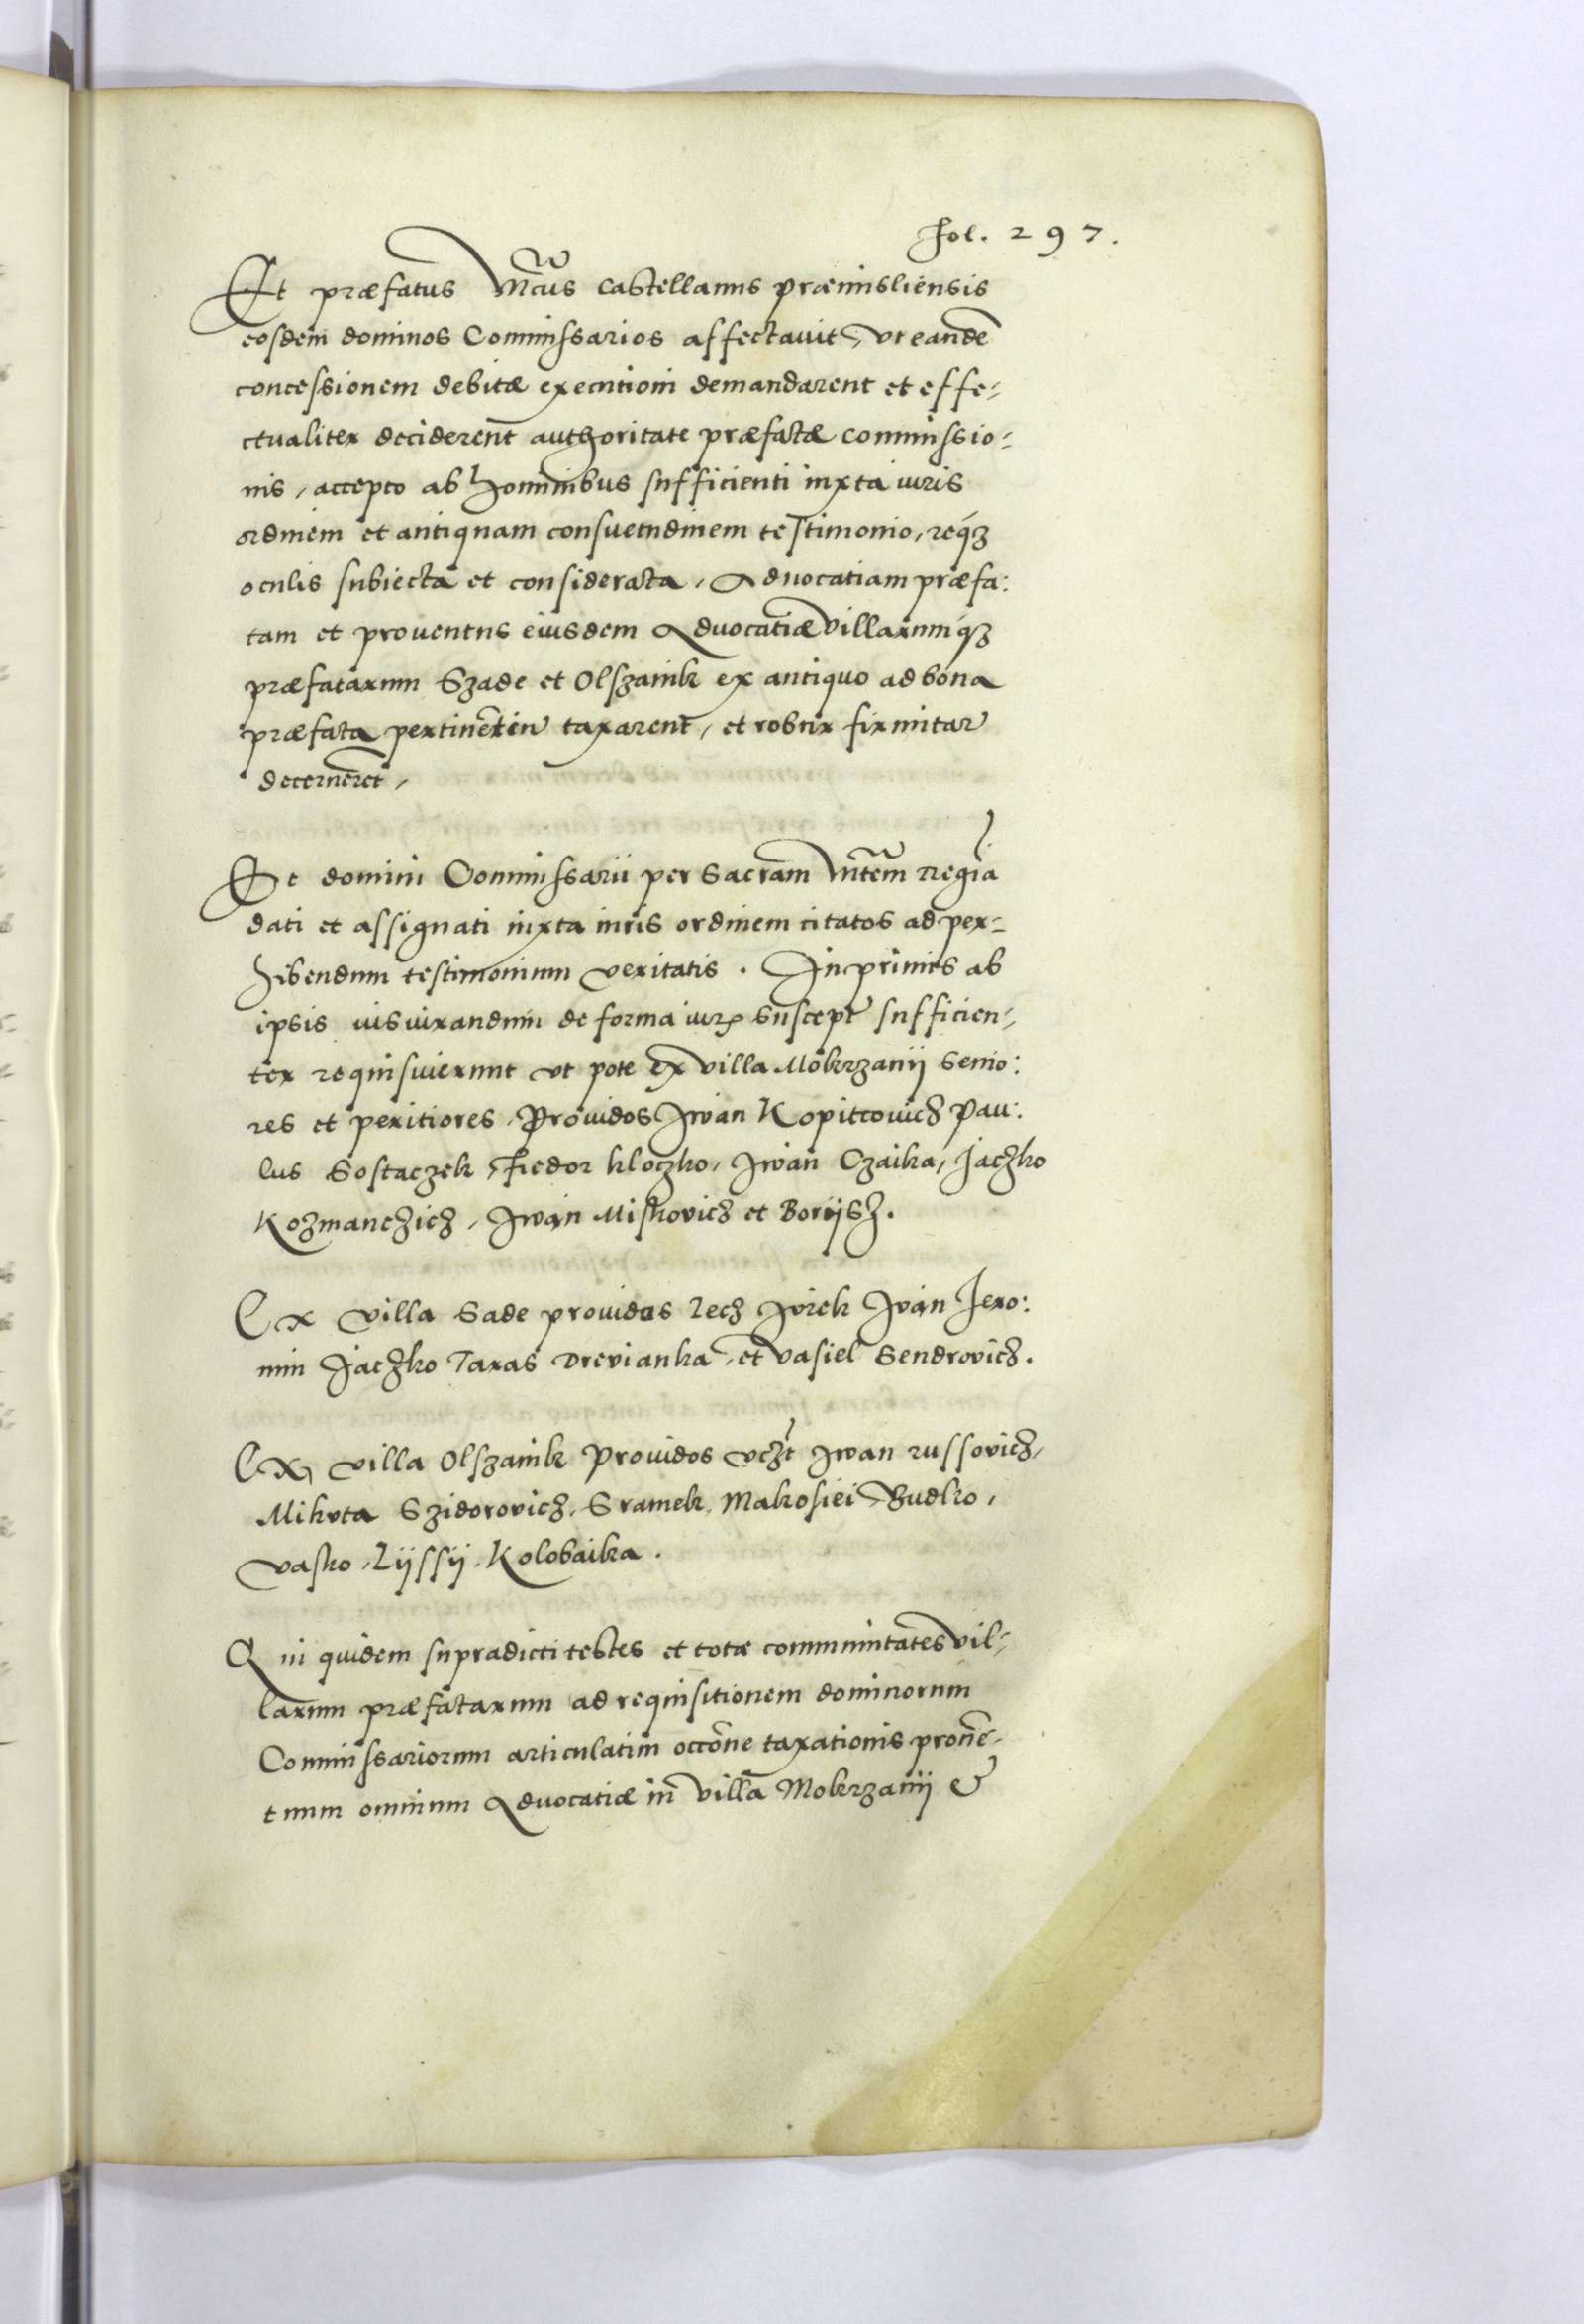 fol. 297.
Et præfatus Mcus Castellanus præmisliensis
eosdem dominos Commissarios affectavit, ut eandē
concessionem debitæ executioni demandarent et effe-
ctualiter deciderent authoritate præfatæ commissio-
nis, accepto ab hominibus sufficienti iuxta iuris
ordinem et antiquam consuetudinem testimonio, reqz
oculis subiecta et considerata, Advocatiam præfa:
tam et proventus eiusdem Advocatiæ villarumqz
præfatarum Szade et Olszanik ex antiquo ad bona
præfata taxarent, et robur
decernerēt,
Et domini Commissarii per Sacram Mtem Regiā
dati et assignati iuxta iuris ordinem citatos ad per-
hibendum testimonium veritatis. Inprimis ab
ipsis iusiurandum de forma iur suscept sufficien-
ter requisiverunt ut pote ex villa Mokrzanÿ senio:
res et peritiores, Providos Iwan Kopitcovich Pau:
lus Sostaczek, Fiedor Kloczko, Iwan Czaika, Jaczko
Kozmanczich, Iwan Miskovich et Borÿsz.
Ex villa Sade providos Lech Ivrek Ivan Jero:
nim Jaczko Taras Drevianka, et Vasiel Sendrovich.
Ex villa Olszanik Providos vczt Iwan Russovich,
Mikuta Szidorovich, Sramek, Makosiei, Budko,
Vasko, Lÿssÿ, Kolobaika.
Qui quidem supradicti testes et totæ communitates vil-
larum præfatarum ad requisitionem dominorum
Commissariorum articulatim occōne taxationis provē-
tuum omnium Advocatiæ in villa Mokrzanÿ et